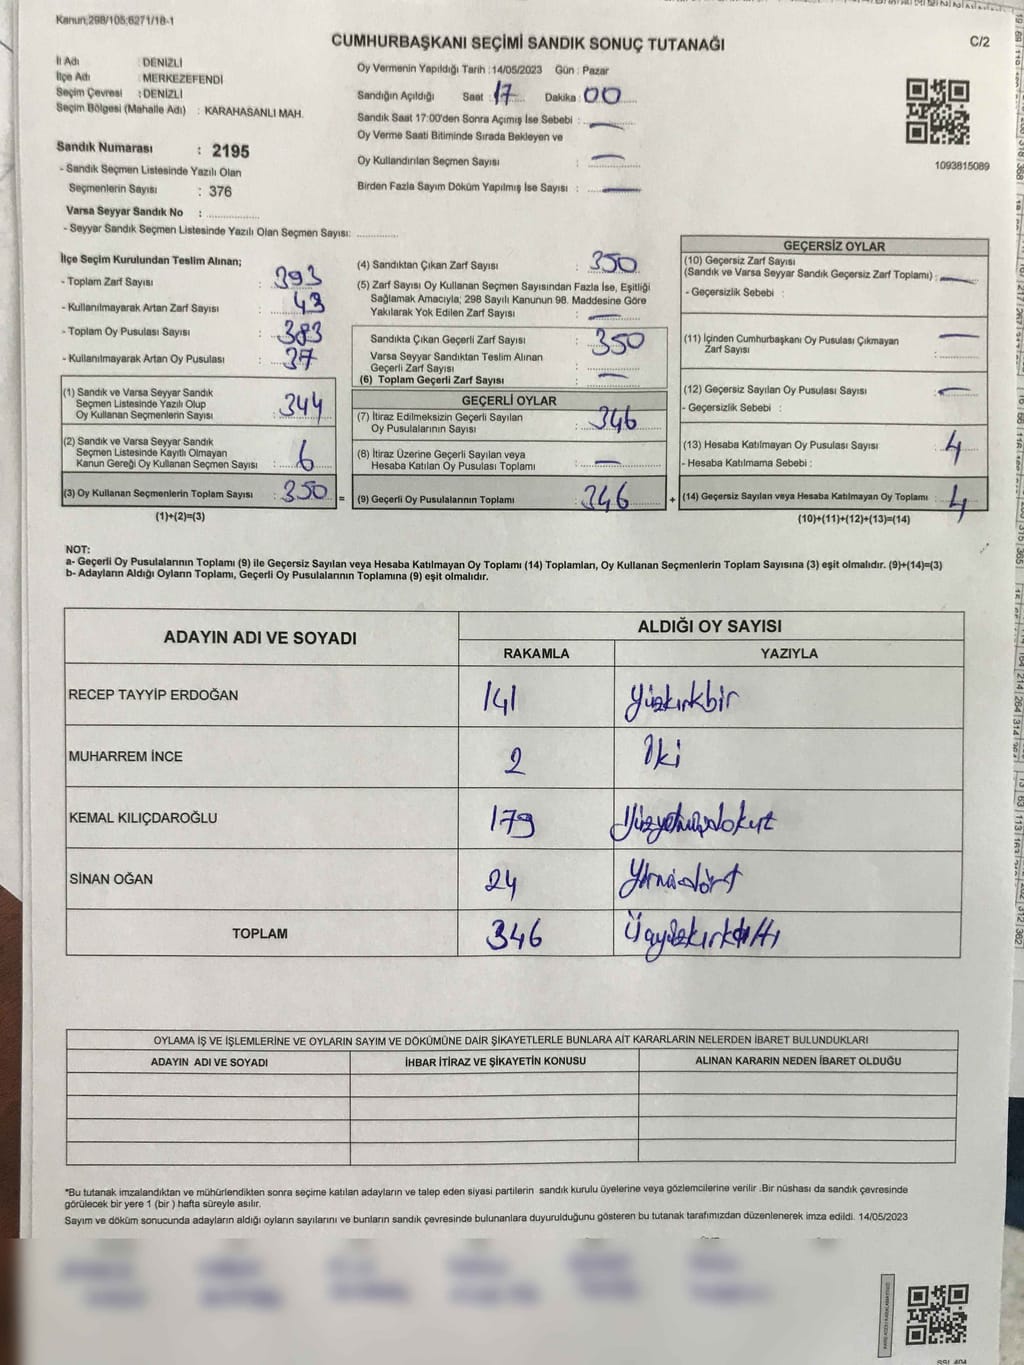 Kanun;298/105;6271/18-1
CUMHURBAŞKANI SEÇİMİ SANDIK SONUÇ TUTANAĞI
C/2
İl Adı : DENİZLİ
İlçe Adı : MERKEZEFENDİ
Seçim Çevresi : DENİZLİ
Seçim Bölgesi (Mahalle Adı) : KARAHASANLI MAH.
Sandık Numarası : 2195
- Sandık Seçmen Listesinde Yazılı Olan
Seçmenlerin Sayısı : 376
Varsa Seyyar Sandık No : ..............
- Seyyar Sandık Seçmen Listesinde Yazılı Olan Seçmen Sayısı: ............
Oy Vermenin Yapıldığı Tarih : 14/05/2023 Gün : Pazar
Sandığın Açıldığı Saat : 17 Dakika : 00
Sandık Saat 17:00'den Sonra Açımış İse Sebebi : —
Oy Verme Saati Bitiminde Sırada Bekleyen ve
Oy Kullandırılan Seçmen Sayısı : —
Birden Fazla Sayım Döküm Yapılmış İse Sayısı : —
1093815089
İlçe Seçim Kurulundan Teslim Alınan;
- Toplam Zarf Sayısı : 393
- Kullanılmayarak Artan Zarf Sayısı : 43
- Toplam Oy Pusulası Sayısı : 383
- Kullanılmayarak Artan Oy Pusulası : 37
(1) Sandık ve Varsa Seyyar Sandık
Seçmen Listesinde Yazılı Olup
Oy Kullanan Seçmenlerin Sayısı : 344
(2) Sandık ve Varsa Seyyar Sandık
Seçmen Listesinde Kayıtlı Olmayan
Kanun Gereği Oy Kullanan Seçmen Sayısı : 6
(3) Oy Kullanan Seçmenlerin Toplam Sayısı : 350 =
(1)+(2)=(3)
(4) Sandıktan Çıkan Zarf Sayısı : 350
(5) Zarf Sayısı Oy Kullanan Seçmen Sayısından Fazla İse, Eşitliği
Sağlamak Amacıyla; 298 Sayılı Kanunun 98. Maddesine Göre
Yakılarak Yok Edilen Zarf Sayısı : —
Sandıkta Çıkan Geçerli Zarf Sayısı : 350
Varsa Seyyar Sandıktan Teslim Alınan
Geçerli Zarf Sayısı :
(6) Toplam Geçerli Zarf Sayısı : —
GEÇERLİ OYLAR
(7) İtiraz Edilmeksizin Geçerli Sayılan
Oy Pusulalarının Sayısı : 346
(8) İtiraz Üzerine Geçerli Sayılan veya
Hesaba Katılan Oy Pusulası Toplamı : —
(9) Geçerli Oy Pusulalarının Toplamı : 346 +
GEÇERSİZ OYLAR
(10) Geçersiz Zarf Sayısı
(Sandık ve Varsa Seyyar Sandık Geçersiz Zarf Toplamı) : —
- Geçersizlik Sebebi :
(11) İçinden Cumhurbaşkanı Oy Pusulası Çıkmayan
Zarf Sayısı : —
(12) Geçersiz Sayılan Oy Pusulası Sayısı : —
- Geçersizlik Sebebi :
(13) Hesaba Katılmayan Oy Pusulası Sayısı : 4
- Hesaba Katılmama Sebebi :
(14) Geçersiz Sayılan veya Hesaba Katılmayan Oy Toplamı : 4
(10)+(11)+(12)+(13)=(14)
NOT:
a- Geçerli Oy Pusulalarının Toplamı (9) ile Geçersiz Sayılan veya Hesaba Katılmayan Oy Toplamı (14) Toplamları, Oy Kullanan Seçmenlerin Toplam Sayısına (3) eşit olmalıdır. (9)+(14)=(3)
b- Adayların Aldığı Oyların Toplamı, Geçerli Oy Pusulalarının Toplamına (9) eşit olmalıdır.
ADAYIN ADI VE SOYADI
ALDIĞI OY SAYISI
RAKAMLA YAZIYLA
RECEP TAYYİP ERDOĞAN 141 Yüzkırkbir
MUHARREM İNCE 2 İki
KEMAL KILIÇDAROĞLU 179 Yüzyetmişdokuz
SİNAN OĞAN 24 Yirmidört
TOPLAM 346 Üçyüzkırkaltı
OYLAMA İŞ VE İŞLEMLERİNE VE OYLARIN SAYIM VE DÖKÜMÜNE DAİR ŞİKAYETLERLE BUNLARA AİT KARARLARIN NELERDEN İBARET BULUNDUKLARI
ADAYIN ADI VE SOYADI İHBAR İTİRAZ VE ŞİKAYETİN KONUSU ALINAN KARARIN NEDEN İBARET OLDUĞU
*Bu tutanak imzalandıktan ve mühürlendikten sonra seçime katılan adayların ve talep eden siyasi partilerin sandık kurulu üyelerine veya gözlemcilerine verilir .Bir nüshası da sandık çevresinde
görülecek bir yere 1 (bir ) hafta süreyle asılır.
Sayım ve döküm sonucunda adayların aldığı oyların sayılarını ve bunların sandık çevresinde bulunanlara duyurulduğunu gösteren bu tutanak tarafımızdan düzenlenerek imza edildi. 14/05/2023